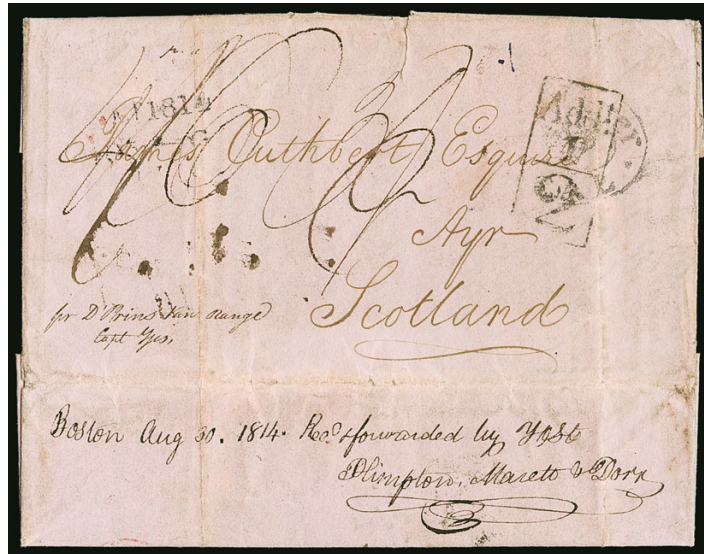 1814
James Cuthbert Esquire
Ayr
Scotland
pr D Prins van orange
Capt
Boston Aug 30. 1814. Recd & forwarded by
Plimpton, Marett & Dorr
Addl
½